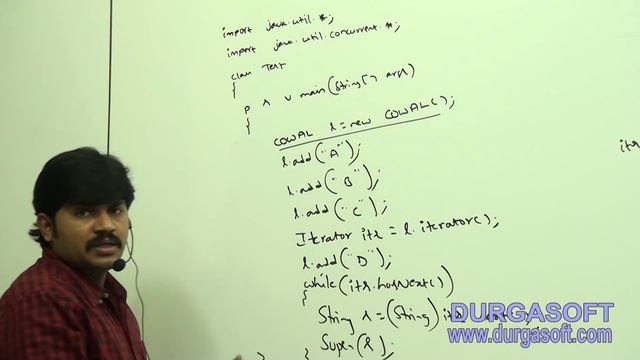 import java.util.*;
import java.util.concurrent.*;
class Test
{
p s v main(String[] args)
{
COWAL l = new COWAL();
l.add("A");
l.add("B");
l.add("C");
Iterator itr = l.iterator();
itr
l.add("D");
while(itr.hasNext())
{
String s = (String)
DURGASOFT
www.durgasoft.com